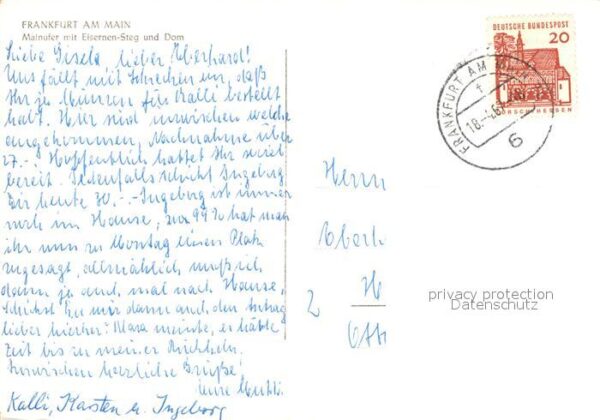 FRANKFURT AM MAIN
Mainufer mit Eisernen-Steg und Dom
Liebe Gisela, lieber Eberhard!
Uns fällt mit Schrecken ein, daß
Ihr ja Münzen für Kalli bestellt
habt. Hier sind inzwischen welche
angekommen, Nachnahme über
27.- Hoffentlich hattet Ihr soviel
bereit. Jedenfalls schickt Ingeborg
Dir heute 30.-. Ingeborg ist immer
noch im Hause, zu 99% hat man
ihr nun zu Montag einen Platz
zugesagt, allmählich muß ich
dann ja auch mal nach Hause.
Schickst Du mir dann auch den Antrag
lieber hierher? Klara meinte, es hätte
Zeit bis zu meiner Rückkehr.
Inzwischen herzliche Grüße!
Eure Mutti.
Kalli, Karsten u. Ingeborg
DEUTSCHE BUNDESPOST
20
LORSCH/HESSEN
FRANKFURT AM MAIN
6
Herrn
Eberh
H
2
privacy protection
Datenschutz